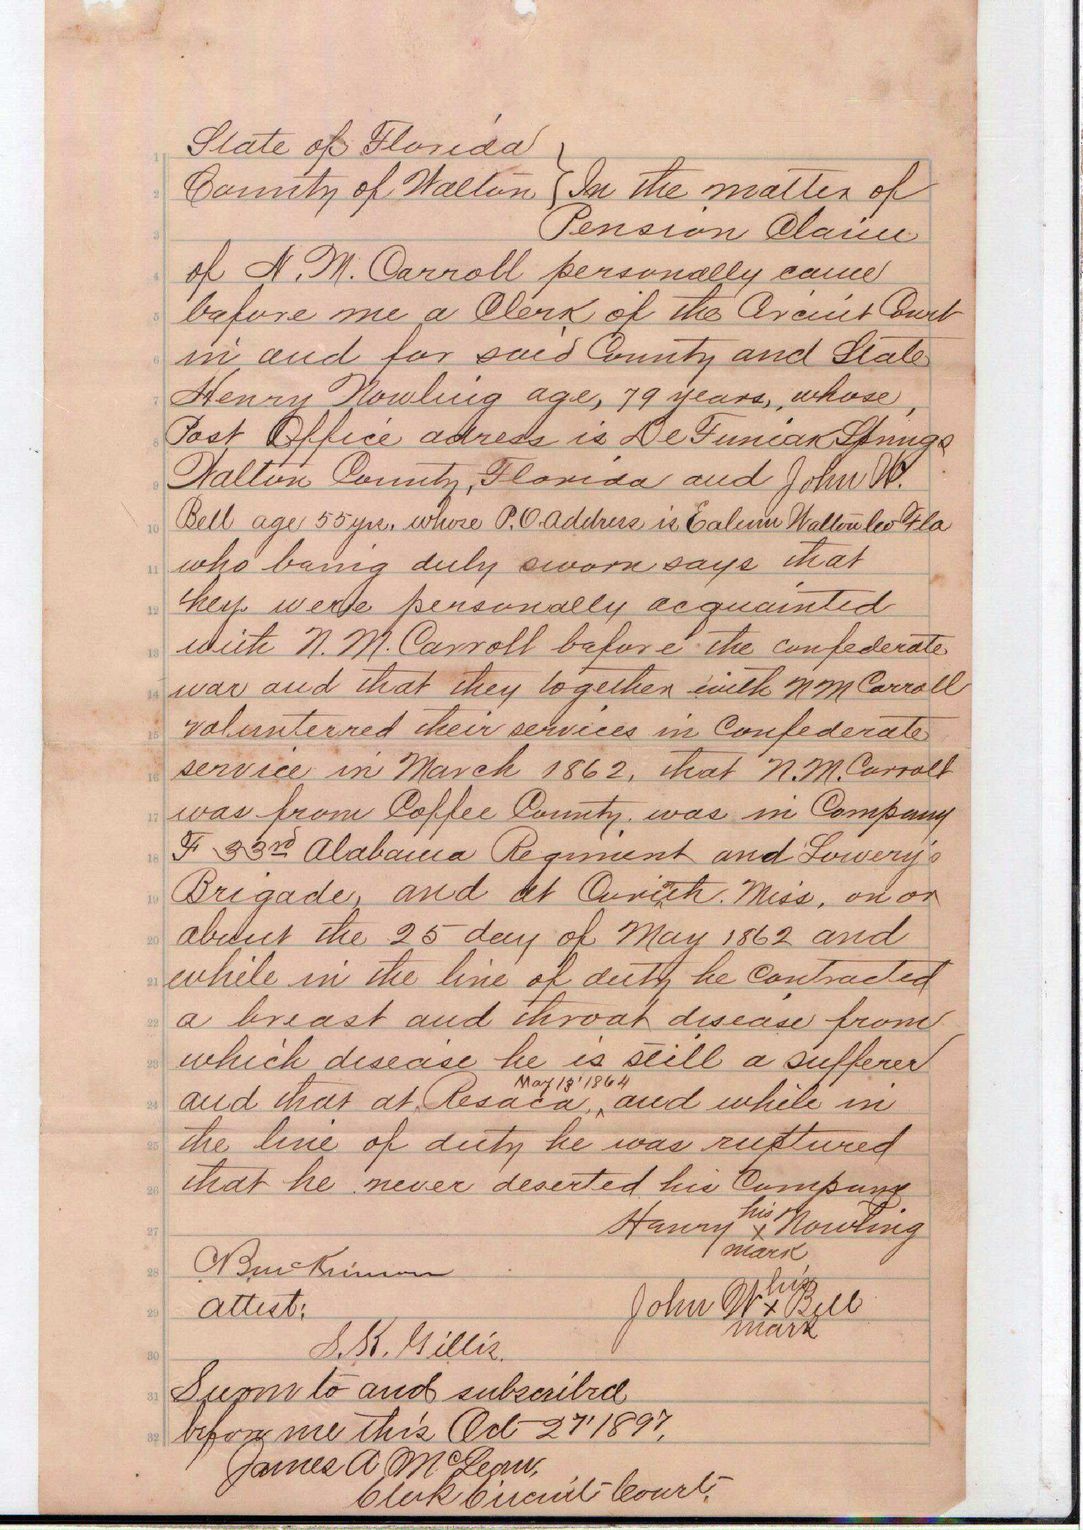 State of Florida
County of Walton } In the matter of
Pension Claim
of N. M. Carroll personally came
before me a Clerk of the Circuit Court
in and for said County and State
Henry Nowling age, 79 years, whose
Post Office adress is De Funiak Springs
Walton County, Florida and John W.
Bell age 55 yrs. whose P.O. Address is Walton Co Fla
who being duly sworn says that
they were personally acquainted
with N. M. Carroll before the confederate
war and that they together with N M Carroll
volunterred their services in Confederate
service in March 1862, that N. M. Carroll
was from Coffee County was in Company
F 33rd Alabama Regiment and Lowery's
Brigade, and at Miss, on or
about the 25 day of May 1862 and
while in the line of duty he contracted
a breast and throat disease from
which disease he is still a sufferer
May 13' 1864
and that at Resaca, ^ and while in
the line of duty he was ruptured
that he never deserted his Company
his
Henry x Nowling
mark
his
attest: John W x Bell
mark
S. K. Gillis.
Sworn to and subscribed
before me this Oct 27' 1897,
James A McLean,
Clerk Circuit Court.